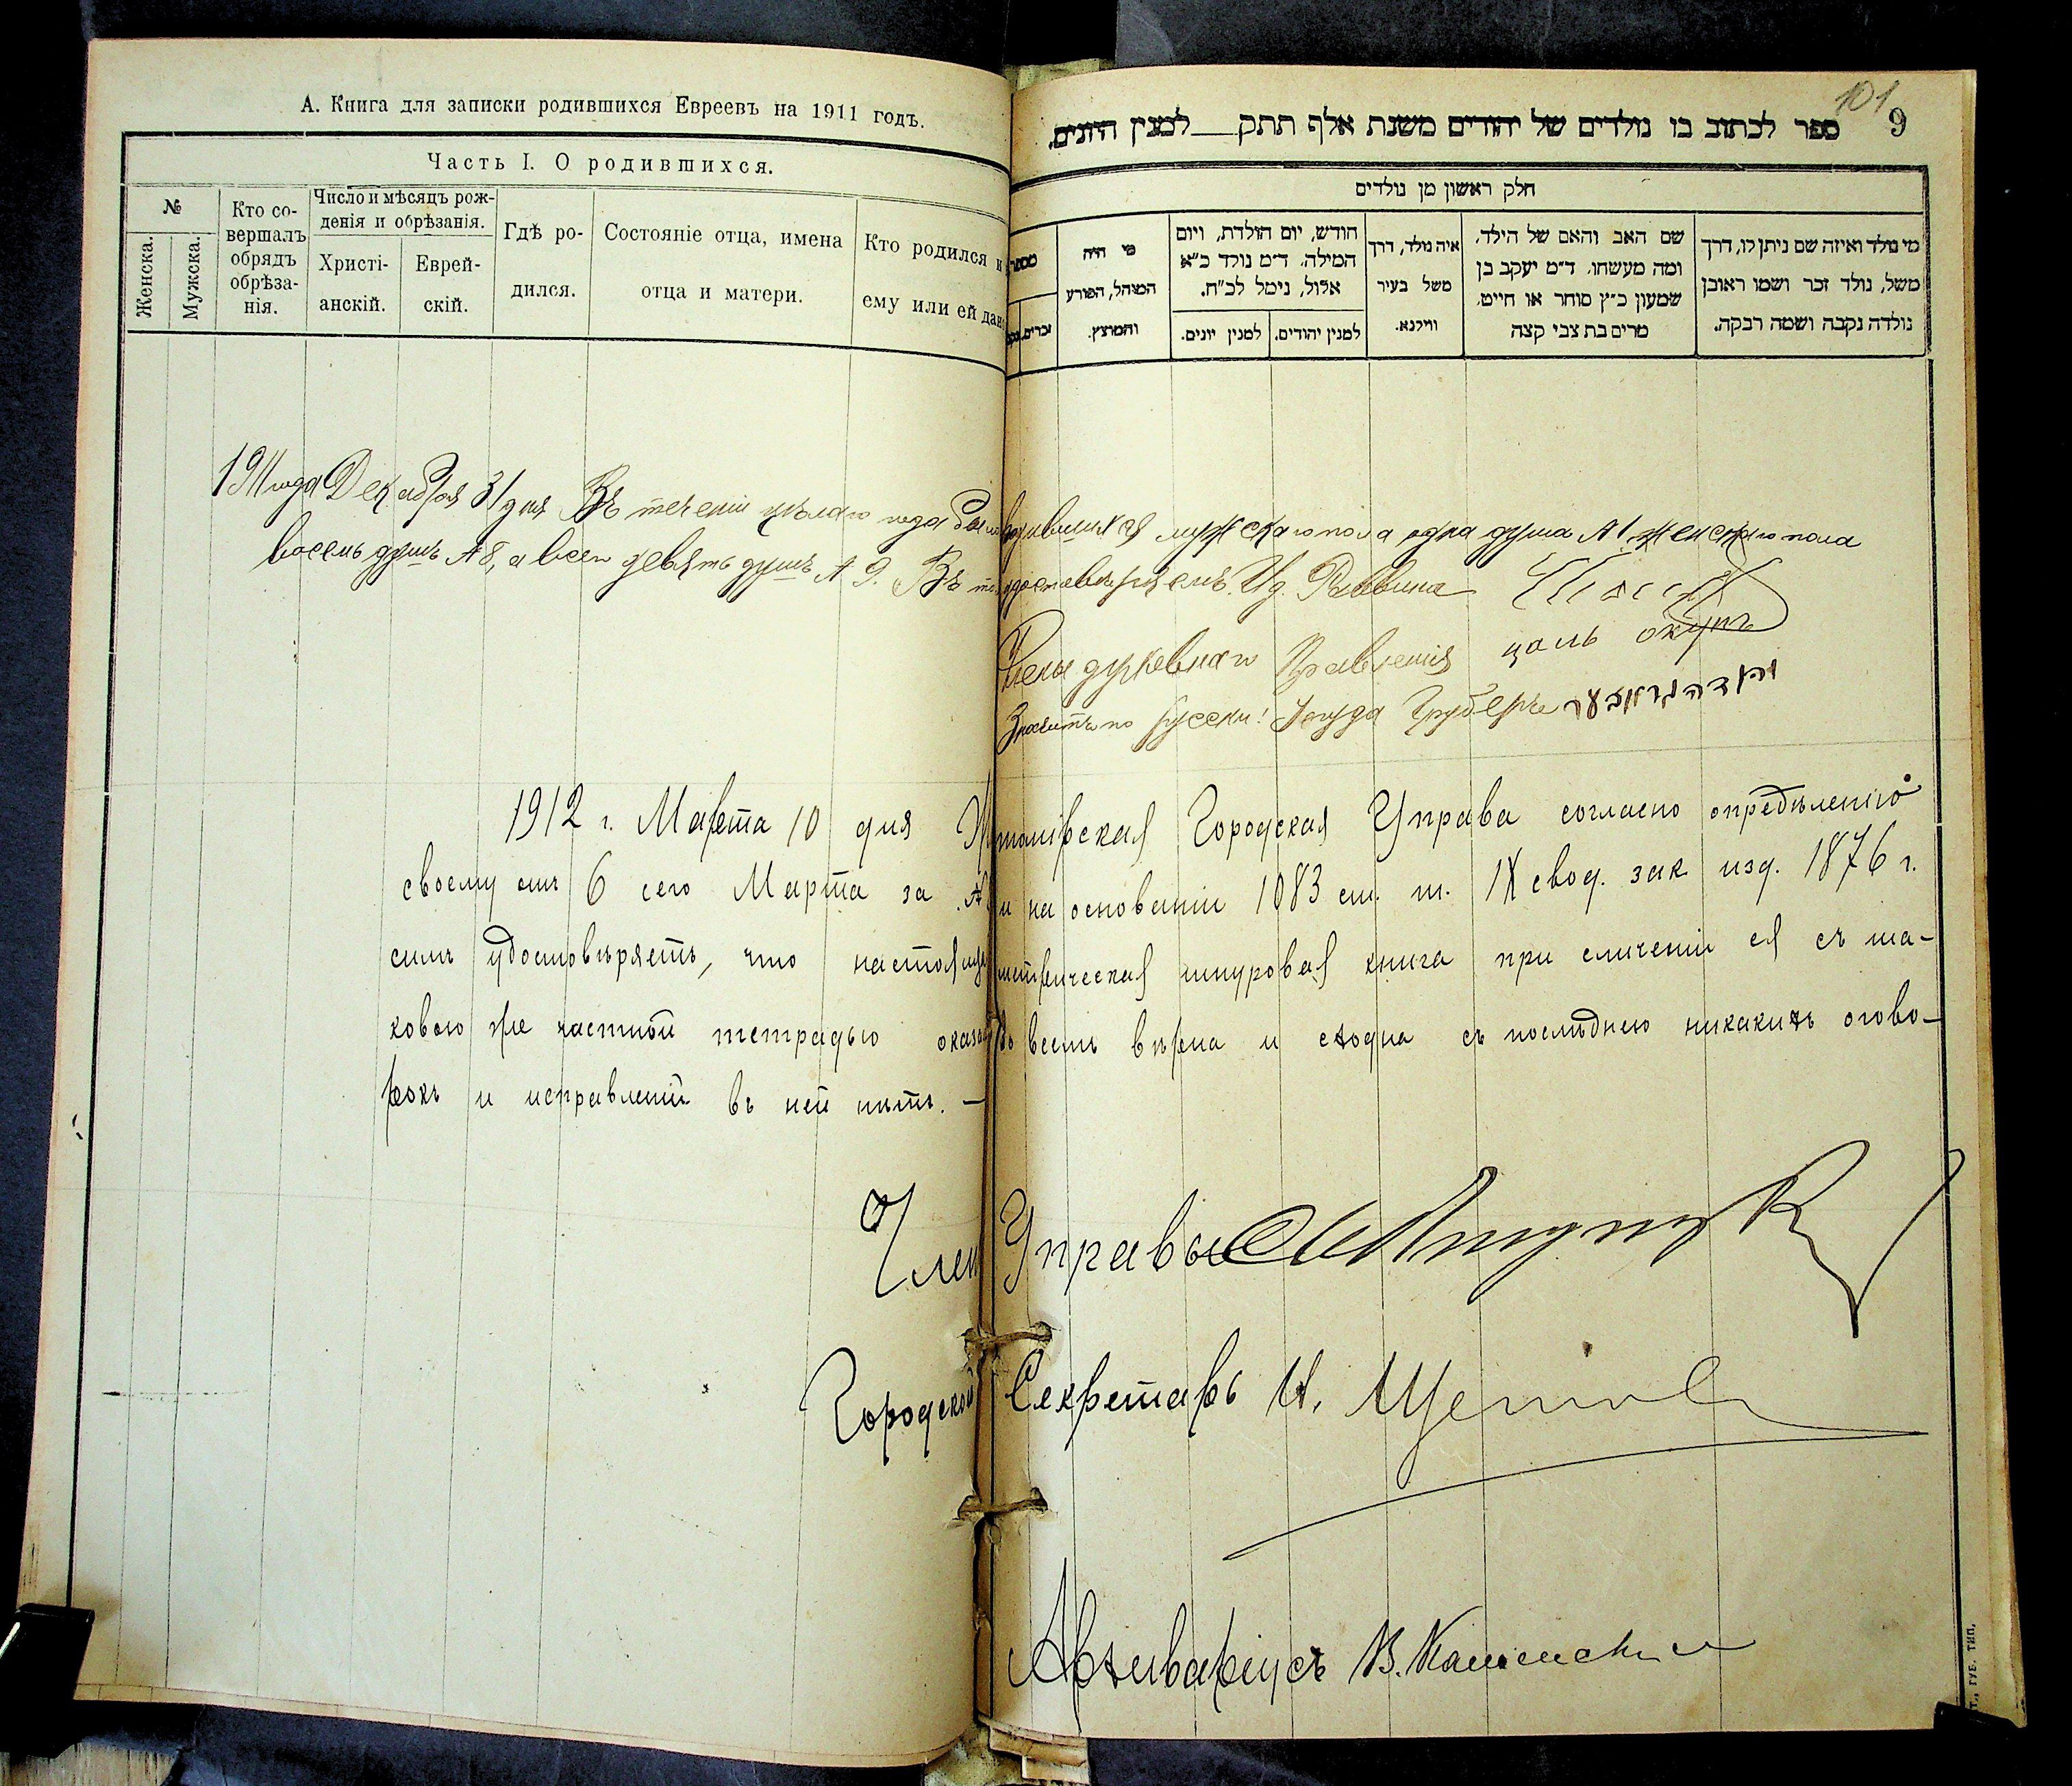 А. Книга для записки родившихся Евреевъ на 1911 годъ.
Часть I. О родившихся.
№
Женска.
Мужска.
Кто со-
вершалъ
обрядъ
обрѣза-
нія.
Число и мѣсяцъ рож-
денія и обрѣзанія.
Христі-
анскій.
Еврей-
скій.
Гдѣ ро-
дился.
Состояніе отца, имена
отца и матери.
Кто родился и
ему или ей дан
101
9
ספר לכתוב בו נולדים של יהודים משנת אלף תתק לסנין היונים.
חלק ראשון מן נולדים
מי נולד ואיזה שם ניתן לו, דרך
משל, נולד זכר ושמו ראובן
נולדה נקבה ושמה רבקה.
שם האב והאם של הילד,
ומה מעשהו. ד״מ יעקב בן
שמעון כ״ץ סוחר או חייט.
מרים בת צבי קצה
איה נולד, דרך
משל בעיר
ווילנא.
חודש, יום הולדת, ויום
המילה. ד״מ נולד כ״א
אלול, נימל לכ״ח.
למנין יהודים.
למנין יונים.
מי היה
המוהל, הפורע
והמוצץ.
מספר
זכרים.
1911 года Декабря 31 дня Въ теченіи цѣлаго года было родившихся мужскаго пола одна душа № 1 женскаго пола
восемь душъ № 8, а всего девять душъ № 9. Въ томъ удостовѣряемъ. Ид. Раввина
Члены духовнаго Правленія цаль окунь
Значитъ по русски: Іегуда Груберъ
1912 г. Марта 10 дня Городская Управа согласно опредѣленію
своему отъ 6 сего Марта за № и на основаніи 1083 ст. т. IX свод. зак изд. 1876 г.
симъ удостовѣряетъ, что настоящая метрическая шнуровая книга при сличеніи ея съ та-
ковою же частной тетрадью оказалась во всемъ вѣрна и сходна съ послѣднею никакихъ огово-
рокъ и исправленій въ ней нѣтъ. —
Членъ Управы
Городской Секретарь И.
Архиваріусъ В. Каменскій
губ. тип.